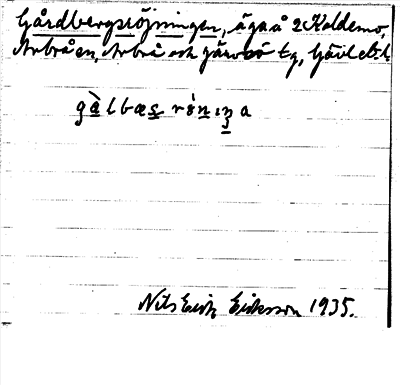 Gårdbergsröjningen, äga å 2 Koldemo,
Arbrå sn, Arbrå och Järvsö tg, Gävleb. l.
gàlbæs rö́nıŋa
Nils Erik Eriksson 1935.